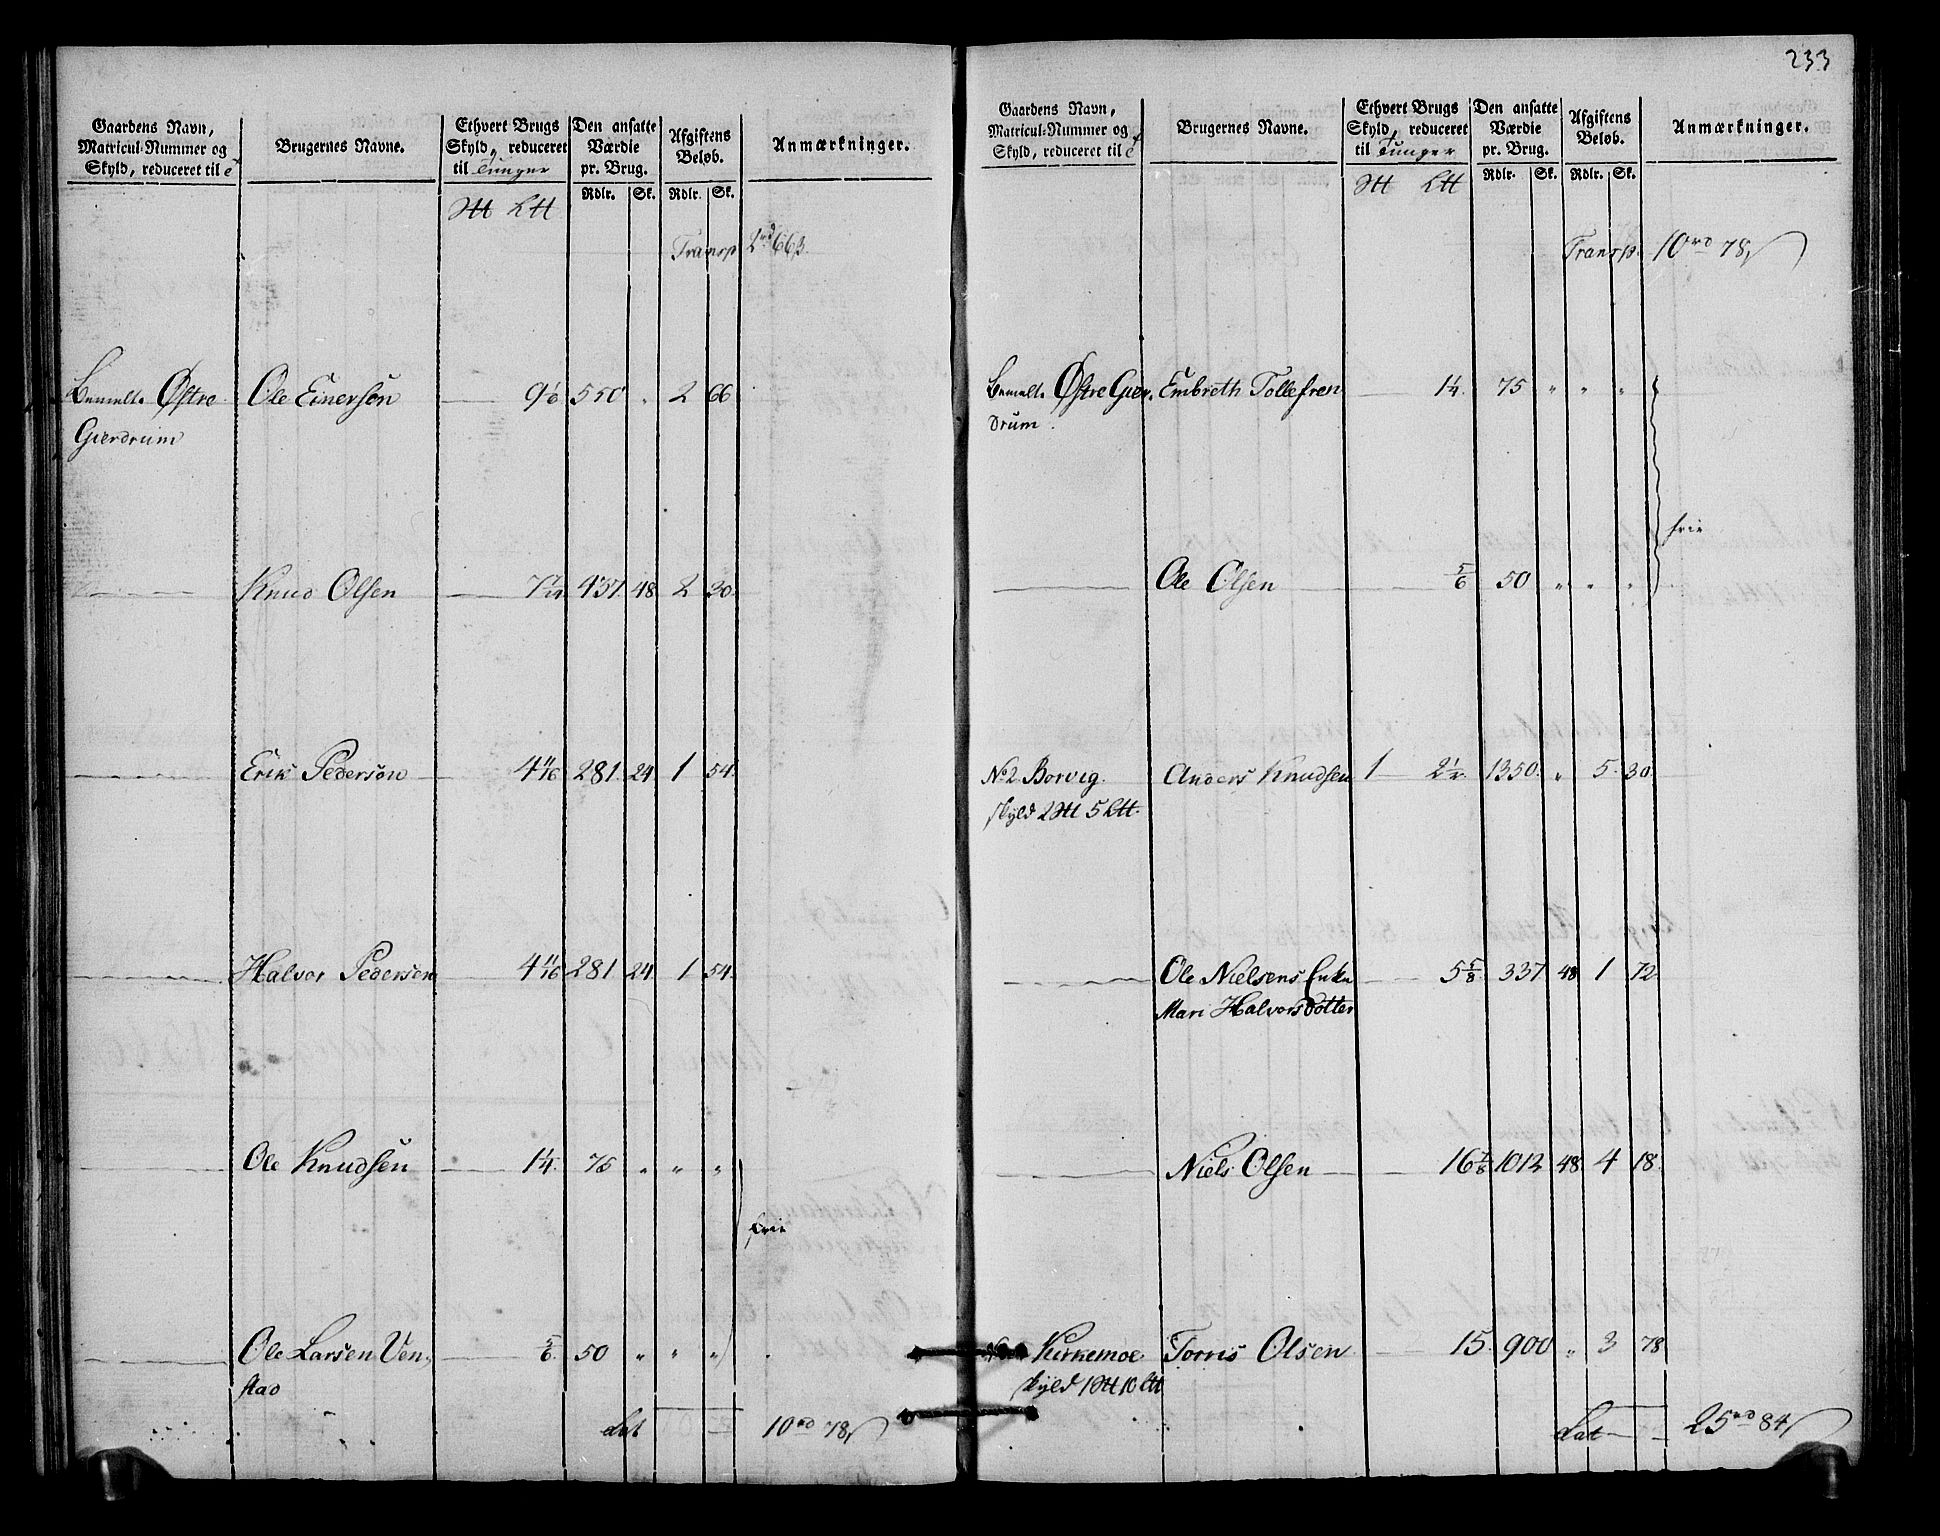 233
Gaardens Navn,
Matricul-Nummer og
Skyld, reduceret til
Brugernes Navne.
Ethvert Brugs
Skyld, reduceret
til Tunger
Den ansatte
Værdie
pr. Brug.
Rdlr. Sk.
Afgiftens
Beløb.
Rdlr. Sk.
Anmærkninger.
Transp 2rd 66s.
Bemelte Østre Ole Einersøn 9 1/6 550 " 2 66
Gierdrum
Knud Olsen 437 48 2 30
Erik Pedersøn 281 24 1 54.
Halvor Pedersen 281 24 1 54.
Ole Knudsen 1 1/4 75 " " "
frie
Ole Larsen Ven- 5/6 50 " " "
stad
Lat 10rd 78s
Gaardens Navn,
Matricul-Nummer og
Skyld, reduceret til
Brugernes Navne.
Ethvert Brugs
Skyld, reduceret
til Tunger
Den ansatte
Værdie
pr. Brug.
Rdlr. Sk.
Afgiftens
Beløb.
Rdlr. Sk.
Anmærkninger.
Transp. 10rd 78s
Bemelte Østre Gier- Embreth Tollefsen 1 1/4 75 " " "
drum.
frie
Ole Olsen 5/6 50 " " "
No 2 Borvig. Anders Knudsen 1 2 1/2 1350. " 5. 30.
skyld 2 5
Ole Nielsens Enke 5 5/8 337 48 1 72.
Mari Halvorsdotter
Niels Olsen 16 7/8 1012 48 4 18.
Kirkemoe Torris Olsen 15. 900 " 3 78
skyld 1 10
Lat 25rd 84s